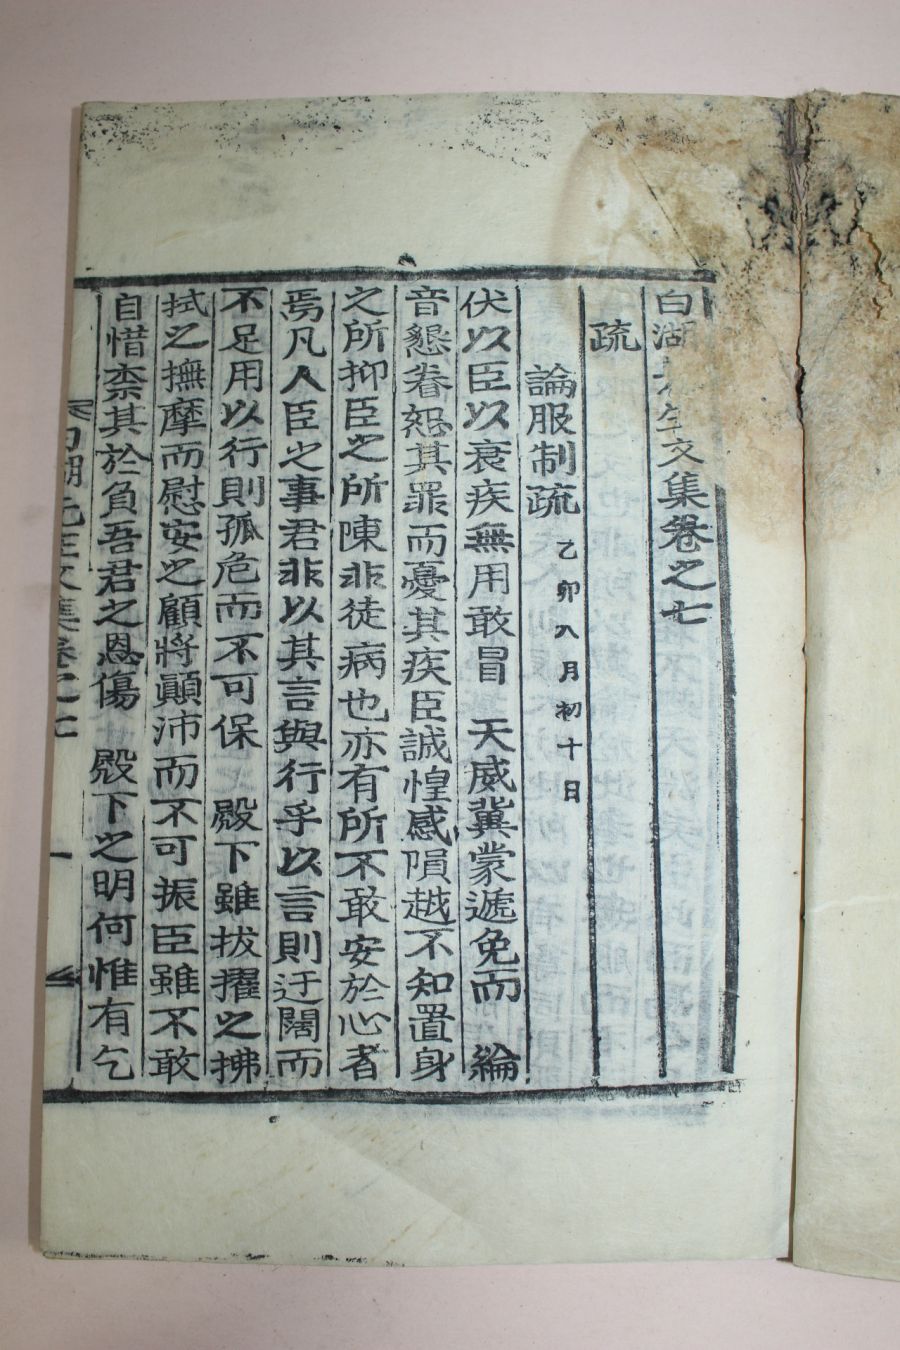 白湖先生文集卷之七
疏
論服制疏 乙卯八月初十日
伏以臣以衰疾無用敢冒 天威冀蒙遞免而 綸
音懇眷恕其罪而憂其疾臣誠惶感隕越不知置身
之所抑臣之所陳非徒病也亦有所不敢安於心者
焉凡人臣之事君非以其言與行乎以言則迂闊而
不足用以行則孤危而不可保 殿下雖拔擢之拂
拭之撫摩而慰安之顧將顚沛而不可振臣雖不敢
自惜柰其於負吾君之恩傷 殿下之明何惟有乞
白湖先生文集卷之七 一